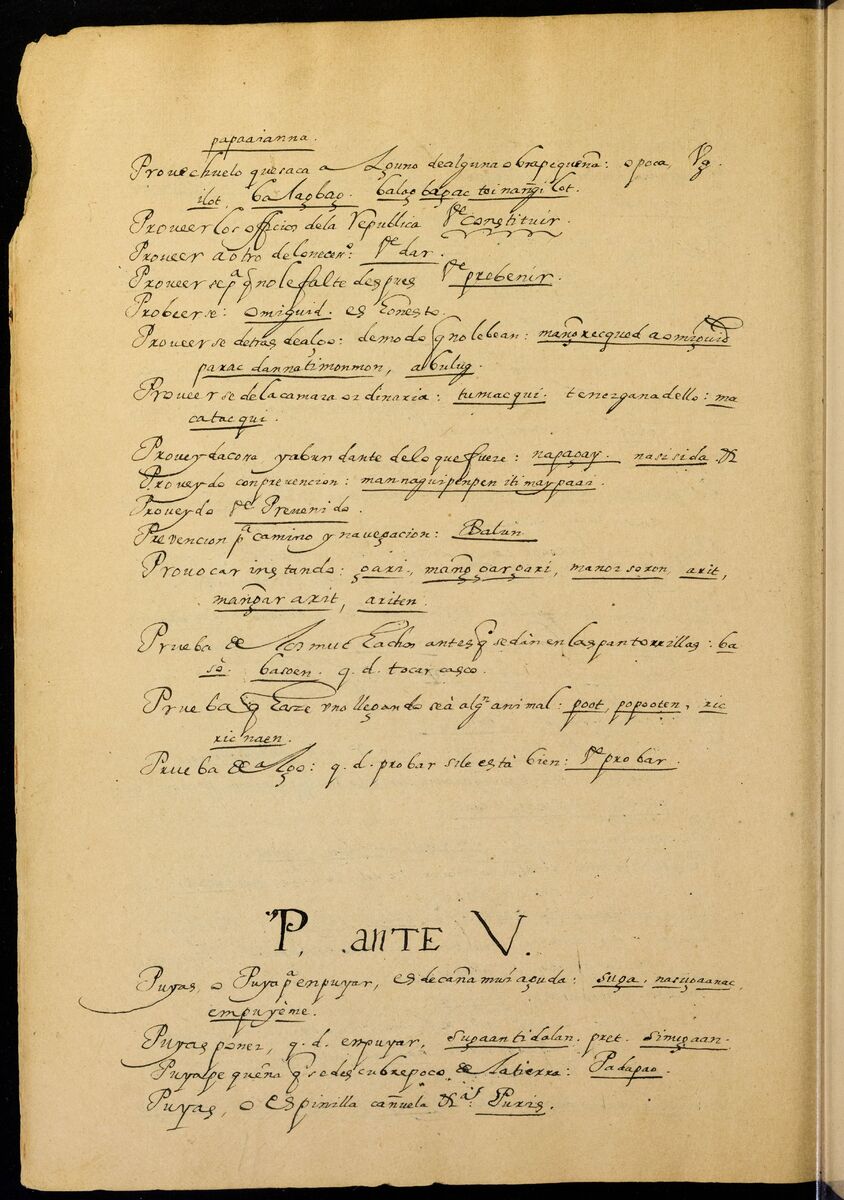 papaaianna.
Provechuelo que saca a Aguno de alguna obra pequeña: o poca, Vg.
ilot, balaobao. balao bapac toi nangilot.
Proveer los officios de la Republica Vᵉ constituir.
Proveer a otro de lo necesº: Vᵉ dar.
Proveerse pª q̃ no le falte despues Vᵉ prebenir.
Probeerse: omiguid. es honesto.
Proveerse detras de algo: de modo q̃ no le bean:
parac dannatimonmon, abulug.
Proveerse de la camara ordinaria: tumacqui. tener gana dello: ma
catacqui.
Proveyda cosa y abundante de lo que fuere: napaọay. nasisida &
Proveydo con prevencion: mannaguipenpen iti maypaai.
Proveydo Vᵉ Prevenido.
Prevencion pª camino y navegacion: Balun.
Provocar instando: gari, mang̃gargari, manorsoron, arit,
mang̃ar arit, ariten.
Prueba de Los muchachos antes q̃ se dán en las pantorrillas: ba
sò. basoen. q. d. tocar casco.
Prueba q̃ haze vno llegandose à algⁿ animal. poot, popooten, ric
ricnaen.
Prueba de Algo: q. d. probar si le està bien: Vᵉ probar.
P, ante V.
Puyas, o Puya pª enpuyar, es de caña muy aguda: suga. nasugaanac,
empuyème.
Puyas poner, q. d. empuyar, sugaantidalan. pret. simugaan.
Puya pequeña q̃ se descubre poco de La tierra: Padapao.
Puyas, o espinilla cañuela &ª: Puris.